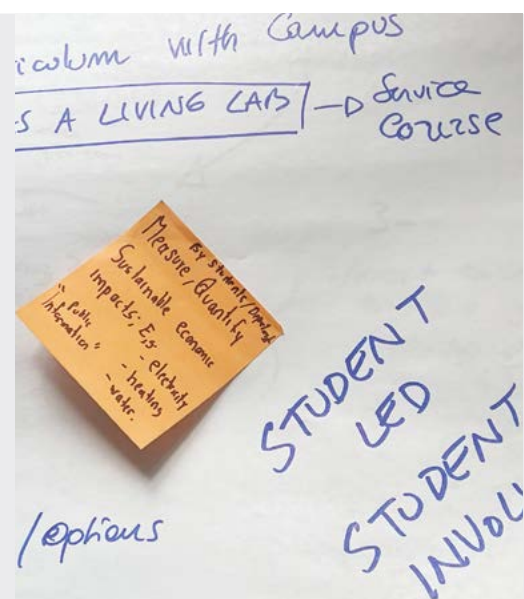 iculum with Campus
S A LIVING LAB → Service
Course
By Students/
Measure/Quantify
Sustainable economic
impacts; E.g
- electricity
- heating
- water.
"Public
Information"
STUDENT
LED
STUDENT
INVOL
/options